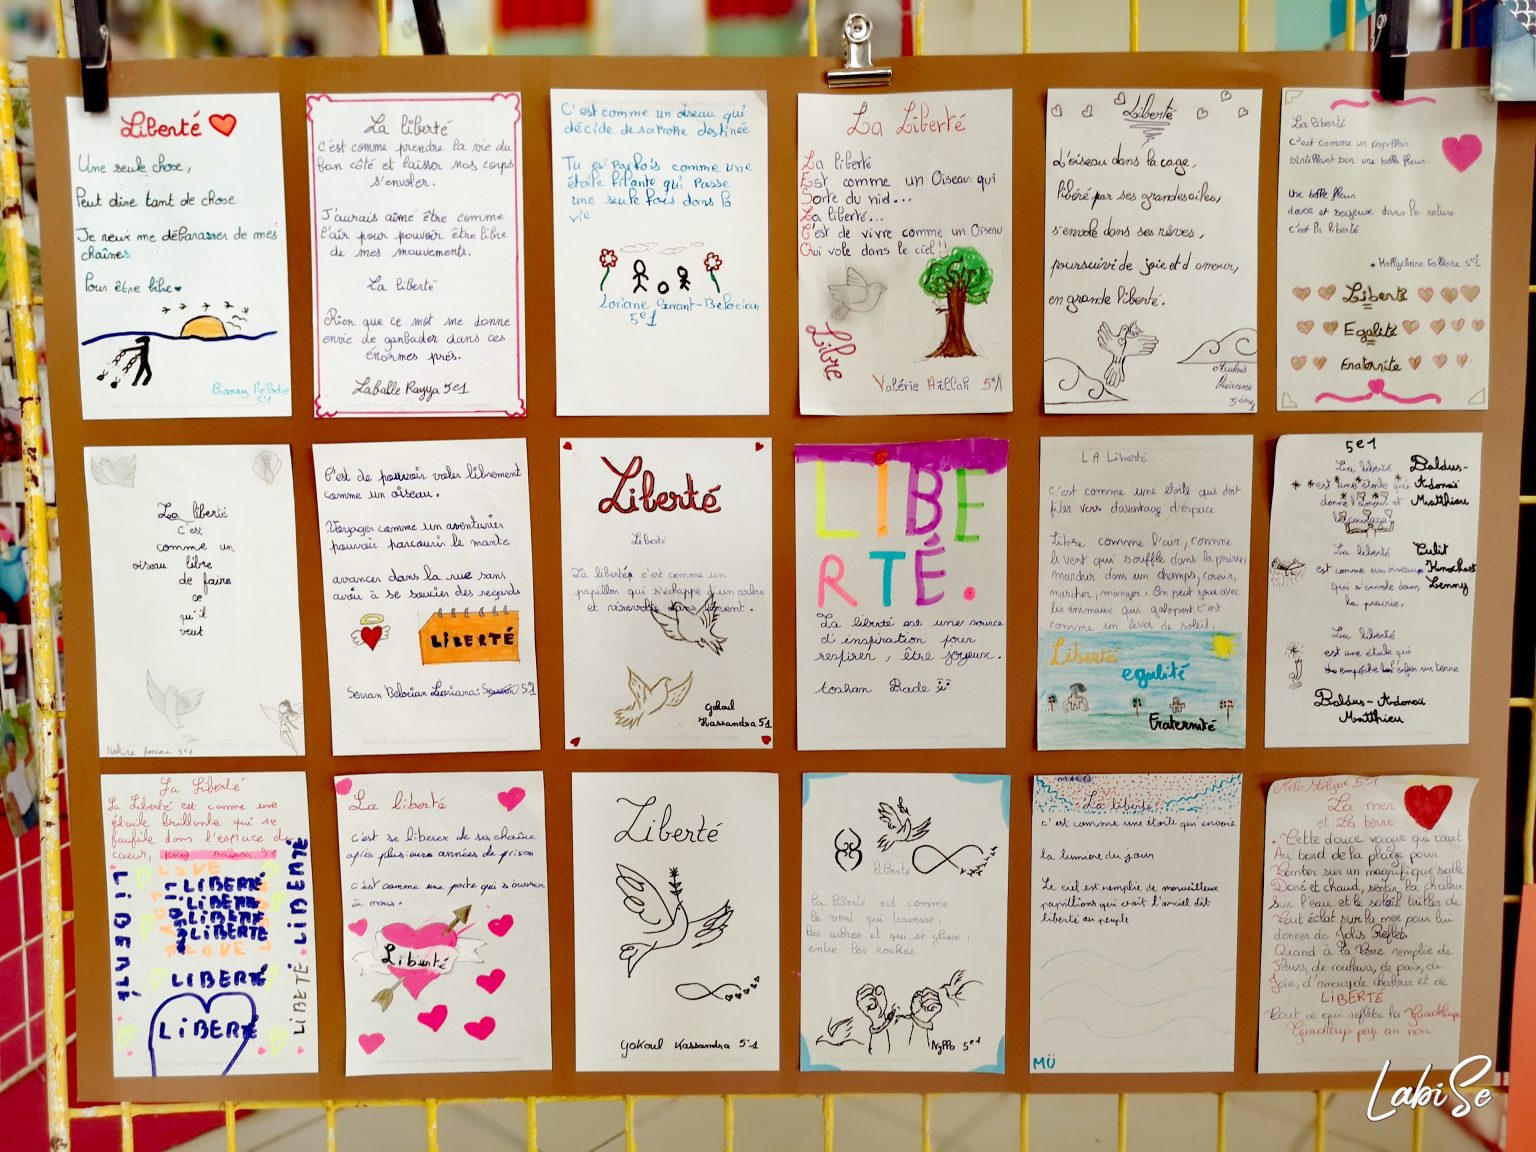 Liberté
Une seule chose,
Peut dire tant de chose
Je veux me débarasser de mes
chaînes
Pour être libre
5e1
La liberté
C'est comme prendre la vie du
bon côté et laisser nos corps
s'envoler.
J'aurais aimé être comme
l'air pour pouvoir être libre
de mes mouvements.
La liberté
Rien que ce mot me donne
envie de gambader dans ces
énormes prés.
Laballe Rayya 5e1
C'est comme un oiseau qui
décide de sa propre destinée
Tu es parfois comme une
étoile filante qui passe
une seule fois dans la
vie
Loriane Servant-Belocian
5e1
La Liberté
La liberté
Est comme un Oiseau qui
Sorte du nid...
La liberté...
C'est de vivre comme un Oiseau
Qui vole dans le ciel!!
Libre
Valérie 5e1
Liberté
L'oiseau dans la cage,
libéré par ses grandes ailes,
s'envole dans ses rêves,
poursuivi de joie et d'amour,
en grande liberté.
5ème1
La liberté
c'est comme un papillon
une belle fleur
douce et soyeuse dans la nature
c'est la liberté
5e1
Liberté
Egalité
Fraternité
La liberté
c'est
comme un
oiseau libre
de faire
ce
qu'il
veut
5e1
C'est de pouvoir voler librement
comme un oiseau.
Voyager comme un aventurier
pouvoir parcourir le monde
avancer dans la rue sans
avoir à se soucier des regards
LIBERTÉ
Servan Belocian Loriana 5e1
Liberté
Liberté
La liberté c'est comme un
papillon qui s'échappe d'un arbre
et virevolte dans le vent.
Gokoul
Kassandra 5e1
LIBE
RTÉ.
La liberté est une source
d'inspiration pour
respirer, être joyeux.
LA Liberté
c'est comme une étoile qui doit
filer vers davantage d'espace
Libre comme l'air, comme
le vent qui souffle dans la prairie,
marcher dans un champs, courir,
marcher, manger. On peut jouer avec
les animaux qui galopent c'est
comme un lever de soleil.
Liberté
egalité
Fraternité
5e1
La liberté
est une étoile qui
donne l'amour et
le courage
Baldus-
Adonaï
Matthieu
La liberté
est comme un oiseau
qui s'envole dans
la prairie.
Lenny
La liberté
est une étoile qui
Baldus-Adonaï
Matthieu
La Liberté
La Liberté est comme une
étoile brillante qui se
faufile dans l'espace du
coeur,
LOVE
LIBERTÉ
LIBERTÉ
LIBERTÉ
LIBERTÉ
LIBERTÉ
LIBERTÉ
LIBERTÉ
La liberté
c'est se libérer de sa chaîne
après plusieurs années de prison
c'est comme une porte qui s'ouvre
à nous.
Liberté
Liberté
Gokoul Kassandra 5e1
liberté
la liberté est comme
le vent qui traverse,
les arbres et qui se glisse,
entre les roches.
5e1
La liberté
c'est comme une étoile qui envoie
la lumière du jour
Le ciel est remplie de merveilleux
papillons qui
liberté au peuple
MÜ
5e1
La mer
et La terre
Cette douce vague qui court
Au bord de la plage pour
Tomber sur un magnifique sable
Doré et chaud, sentir la chaleur
Sur l'eau et le soleil briller de
Tout éclat sur la mer pour lui
donner de Jolis Reflets
Quand à la Terre remplie de
Fleurs, de couleurs, de paix, de
Joie, d'amour, de chaleur et de
LIBERTÉ
Tout ce qui reflète la Guadeloupe
Guadloup peyi an nou
LabiSe